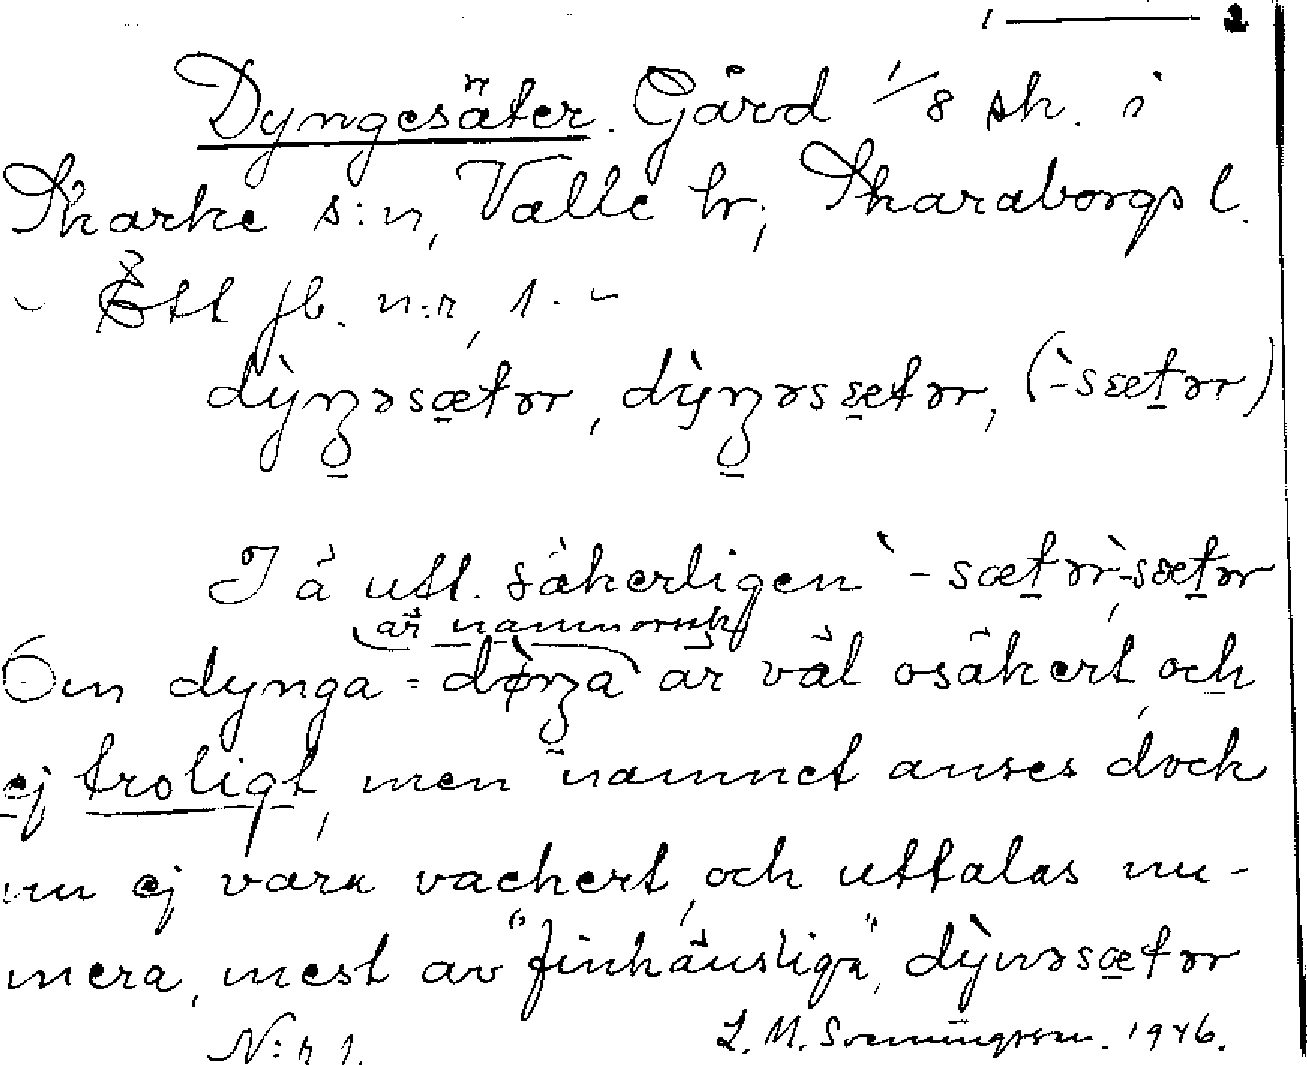 1 — 2
Dyngesäter. Gård 1/8 sk. i
Skarke s:n, Valle hr, Skaraborgs l.
- Ett jb. n:r, 1. -
dỳŋəsætər, dỳŋəssætər, (-̀sætər)
I ä utt. säkerligen -̀sætər, -̀sætər
är namnorsak
Om dynga = dø̀ŋa är väl osäkert, och
ej troligt, men namnet anses dock
nu ej vara vackert, och uttalas nu-
mera, mest av "finhänsliga", dỳnəsætər
N:r 1. L. M. Svenningsson. 1946.